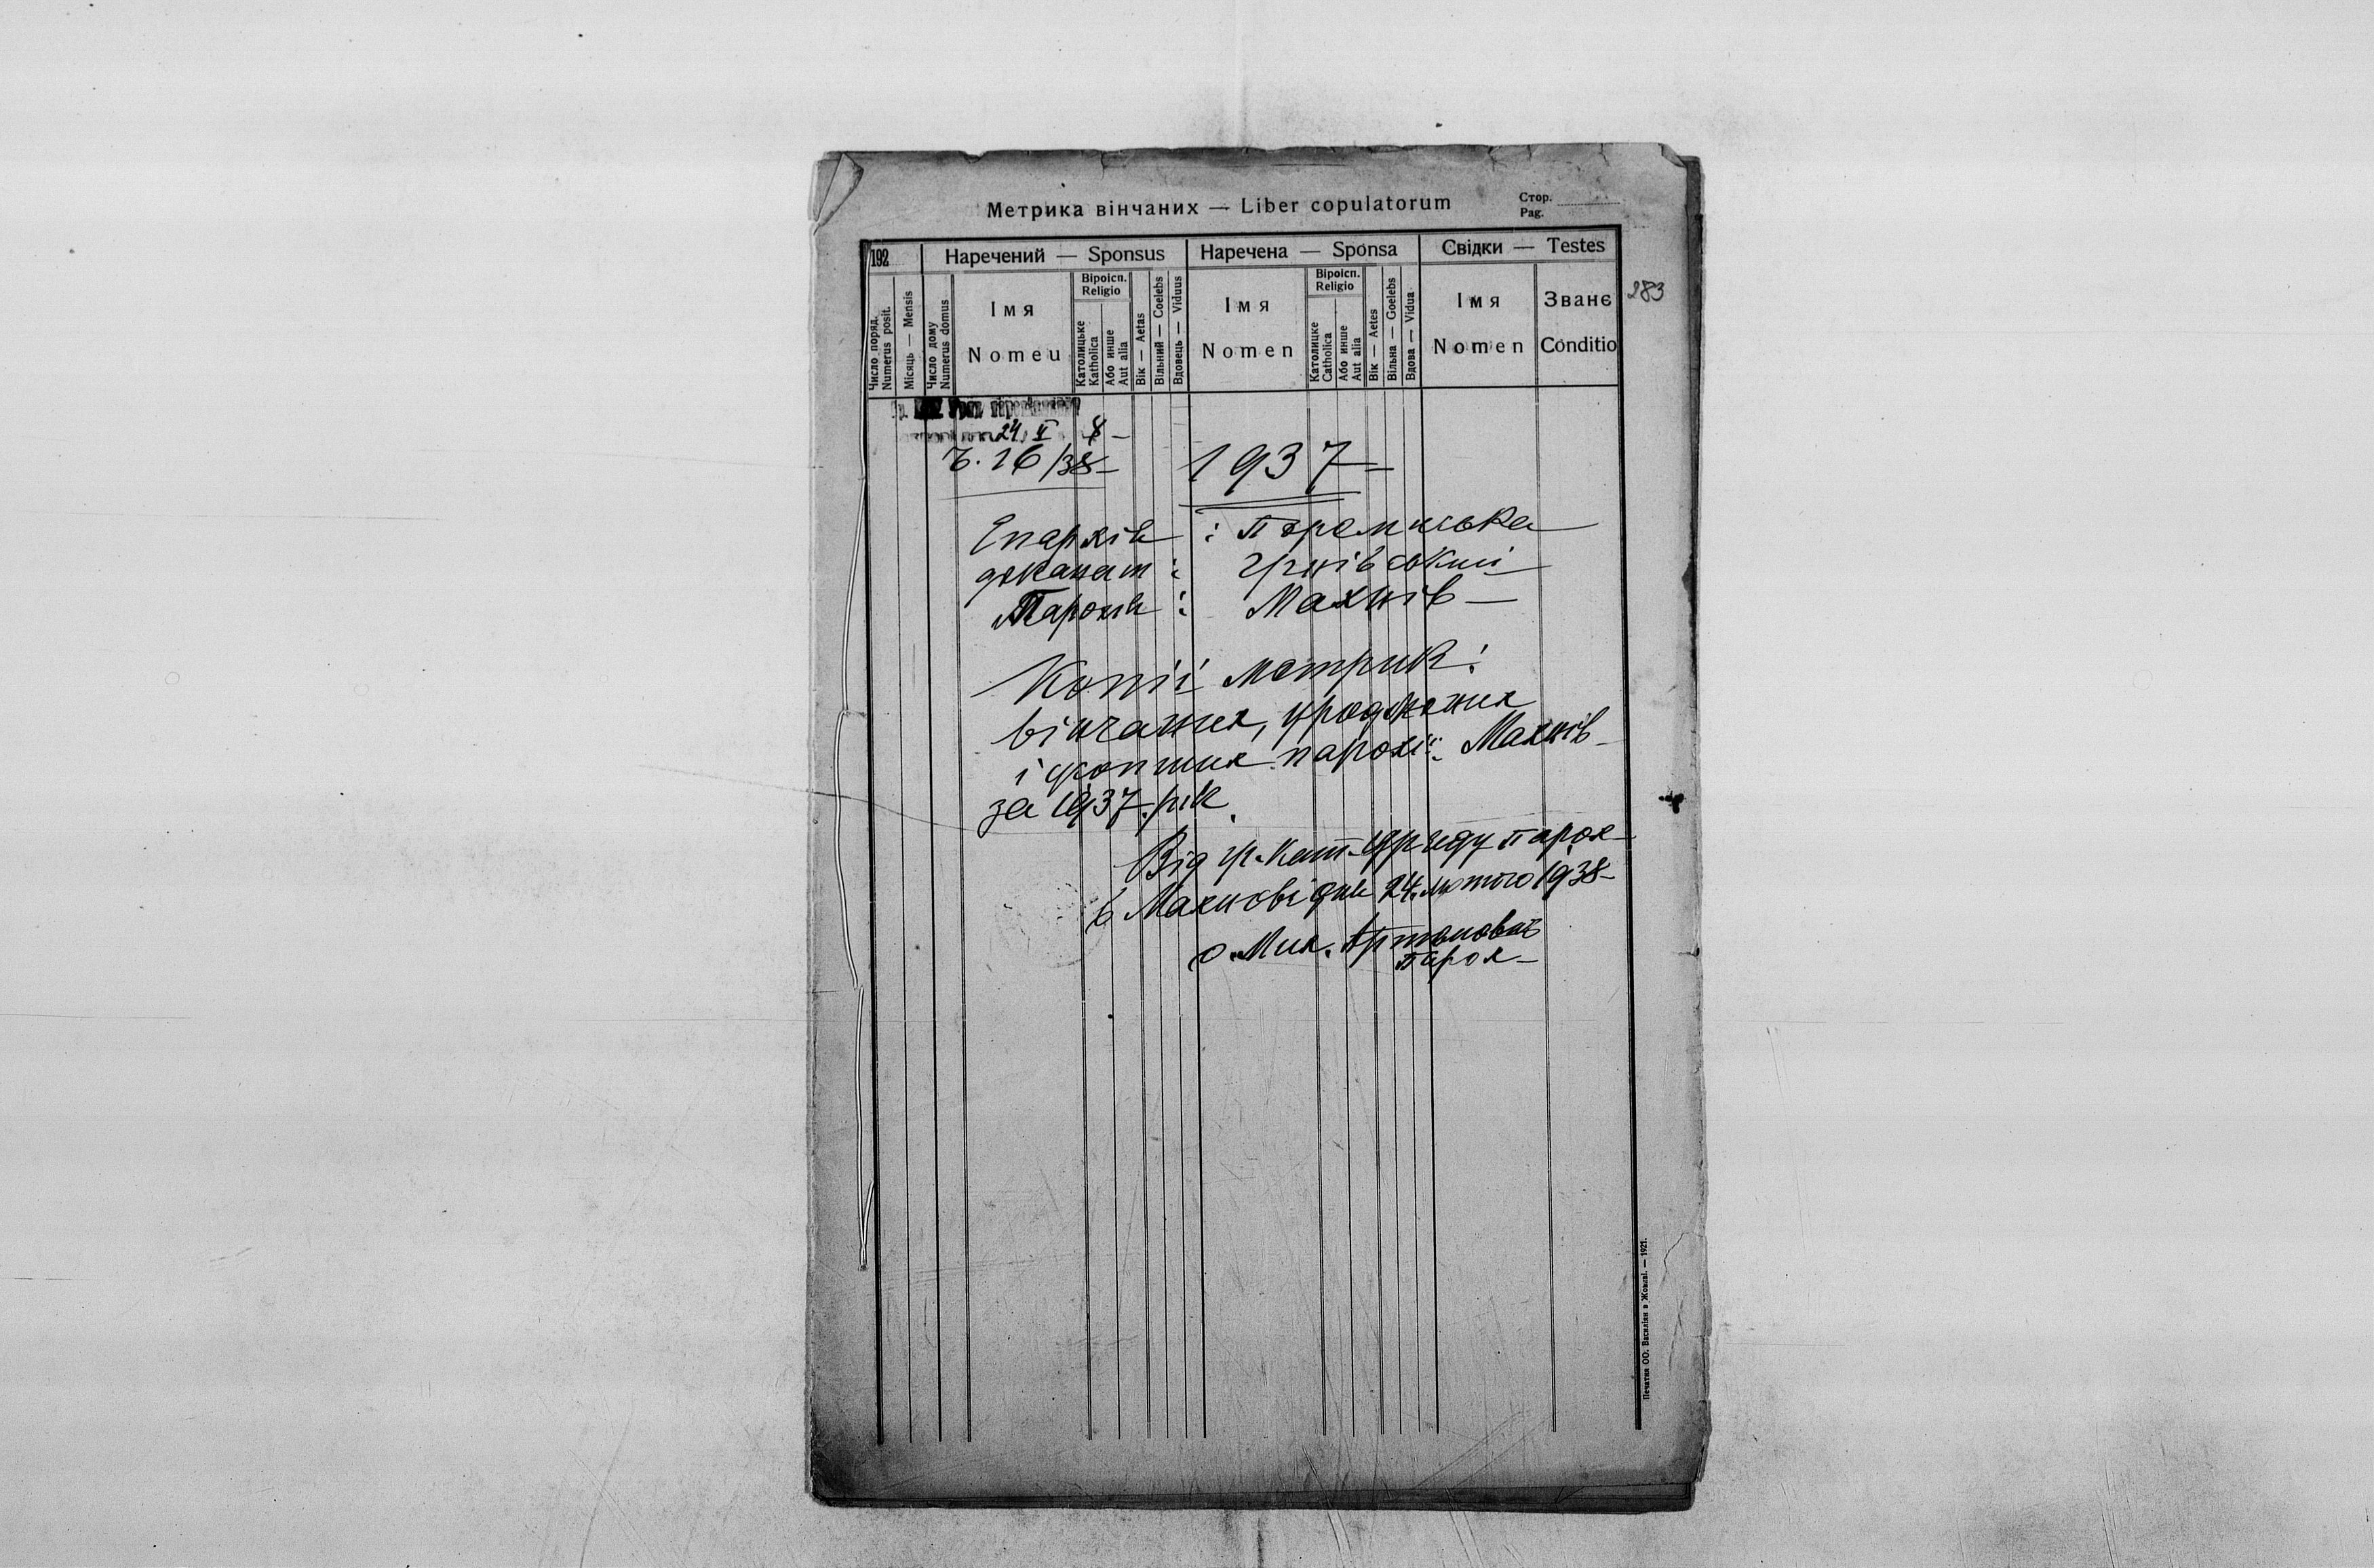 Метрика вінчаних — Liber copulatorum
Стор.
Pag.
192
Наречений — Sponsus
Наречена — Sponsa
Свідки — Testes
283
Число поряд.
Numerus posit.
Місяць — Mensis
Число дому
Numerus domus
Імя
Nomeu
Віроісп.
Religio
Католицьке
Katholica
Або инше
Aut alia
Вік — Aetas
Вільний — Coelebs
Вдовець — Viduus
Імя
Nomen
Віроісп.
Religio
Католицке
Catholica
Або инше
Aut alia
Вік — Aetes
Вільна — Coelebs
Вдова — Vidua
Імя
Nomen
Званє
Conditio
24. II 8 –
Ч. 16/38 –
1937 –
Епархія : Перемиська
деканат : Угнівський
Парохія : Махнів –
Копії метрик:
вінчаних, уроджених
і усопших парохії: Махнів –
за 1937. рік
Від гр.-кат. Уряду парох –
в Махнові дня 24. лютого 1938 –
о. Мик.
парох –
Печатня ОО. Василіян в Жовкві. — 1921.